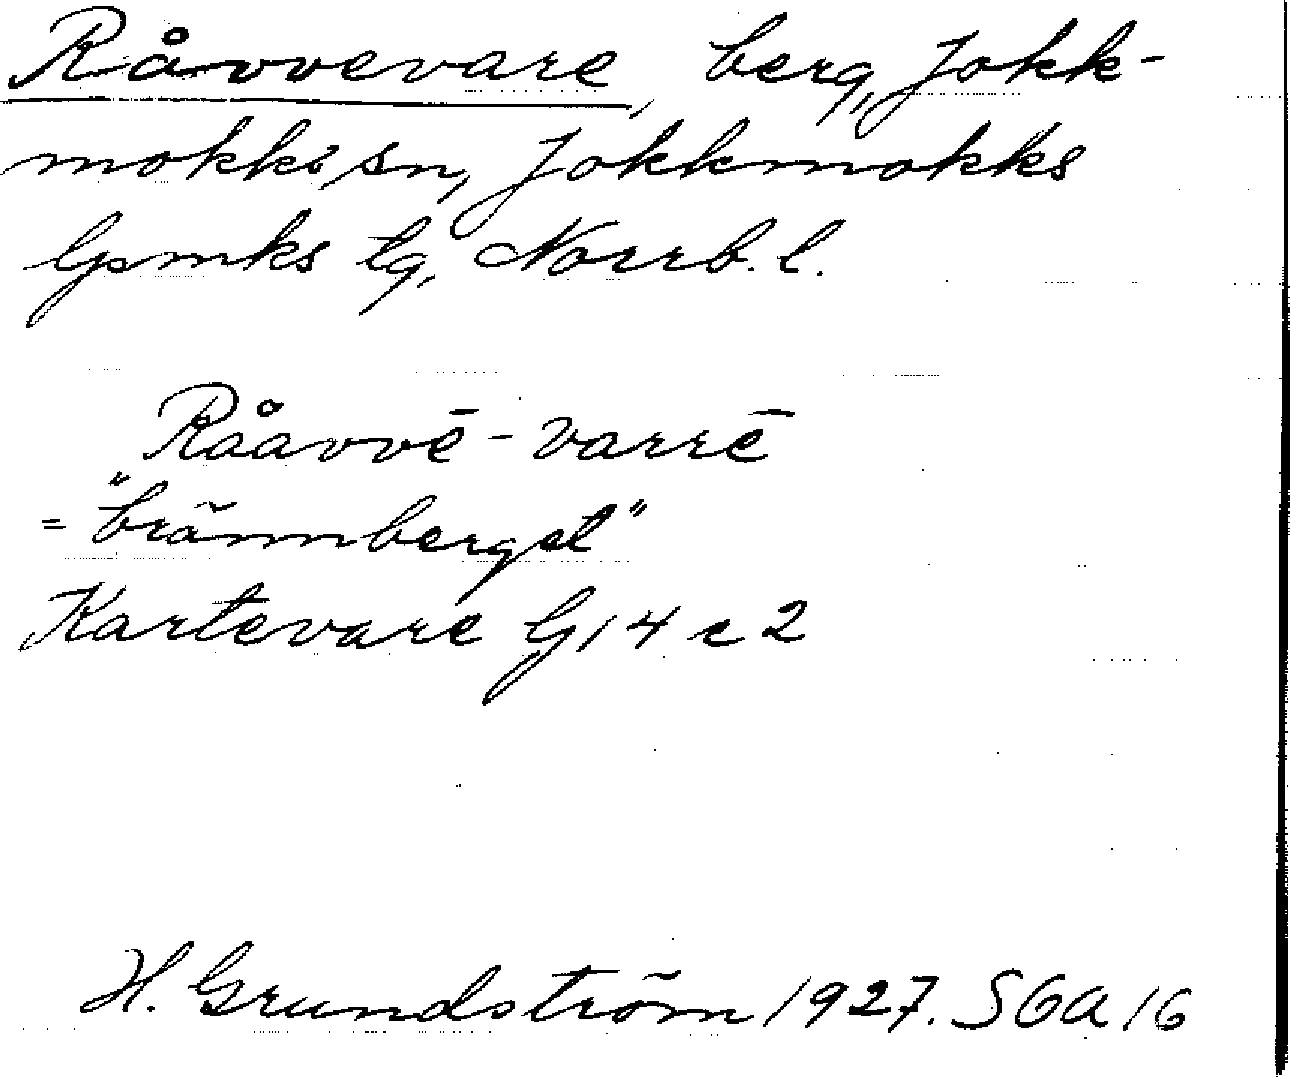 Råvvevare, berg, Jokk-
mokks sn, Jokkmokks
lpmks tg, Norrb. l.
Råavvē-varrē
= "brännberget"
Kartevare G 14 c 2
H. Grundström 1927. SGA 16